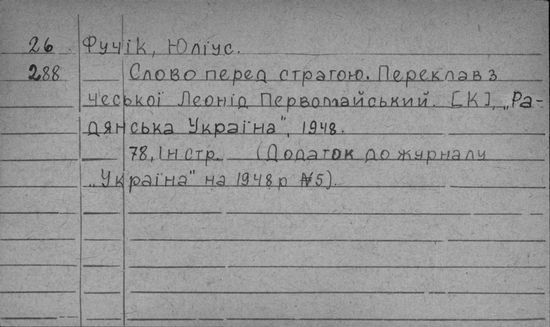 26 Фучік, Юліус.
288 Слово перед стратою. Переклав з
чеської Леонід Первомайський. [К], „Ра-
дянська Україна", 1948.
78, Інстр. (Додаток до журналу
„Україна" на 1948 р №5).